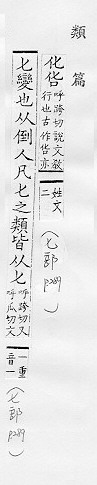 類篇
化呼跨切說文教行也古作亦姓文二 (匕部 P289)
匕變也从倒人凡匕之類皆从匕呼跨切又呼瓜切文一重音一 (匕部 P289)